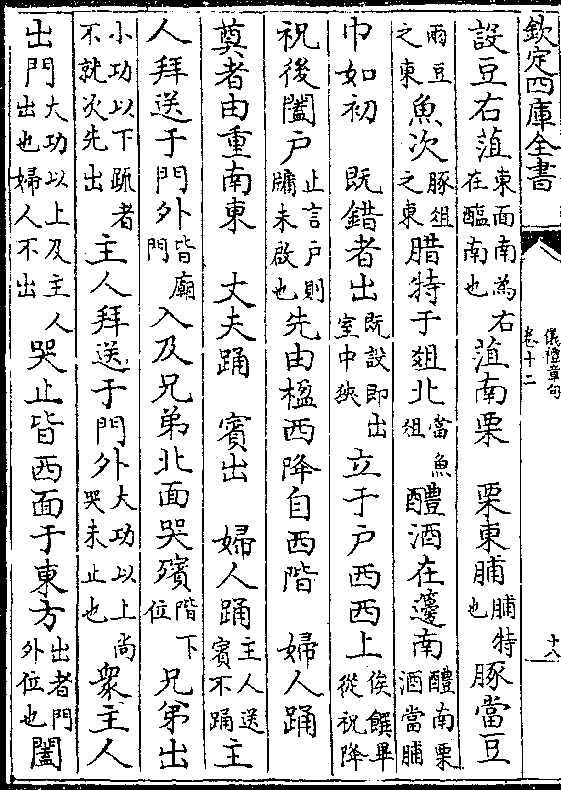 欽定四庫全書
儀禮章句
卷十二
十八
設豆右菹東面南為右在醢南也菹南栗　栗東脯脯特也豚當豆
兩豆之東魚次豚俎之東腊特于俎北當魚俎醴酒在籩南醴南栗酒當脯
巾如初　既錯者出既設即出室中狹立于戶西西上俟饌畢從祝降
祝後闔戶止言戶則牖未啟也先由楹西降自西階　婦人踊
奠者由重南東　丈夫踊　賓出　婦人踊主人送賓不踊主
人拜送于門外皆廟門入及兄弟北面哭殯階下位兄弟出
小功以下疏者不就次先出主人拜送于門外大功以上尚哭未止也衆主人
出門大功以上及主人出也婦人不出哭止皆西面于東方出者門外位也闔